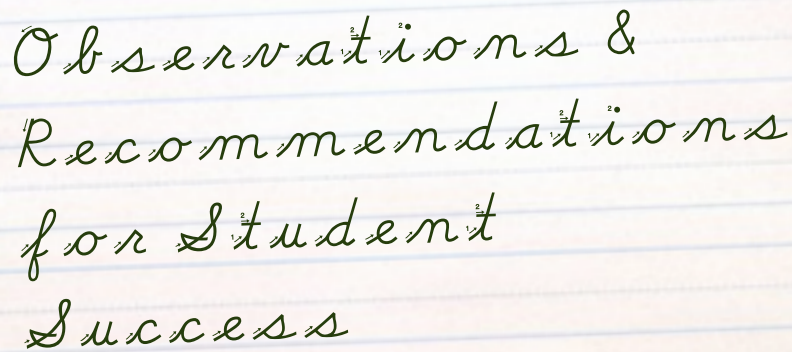 Observations &
Recommendations
for Student
Success